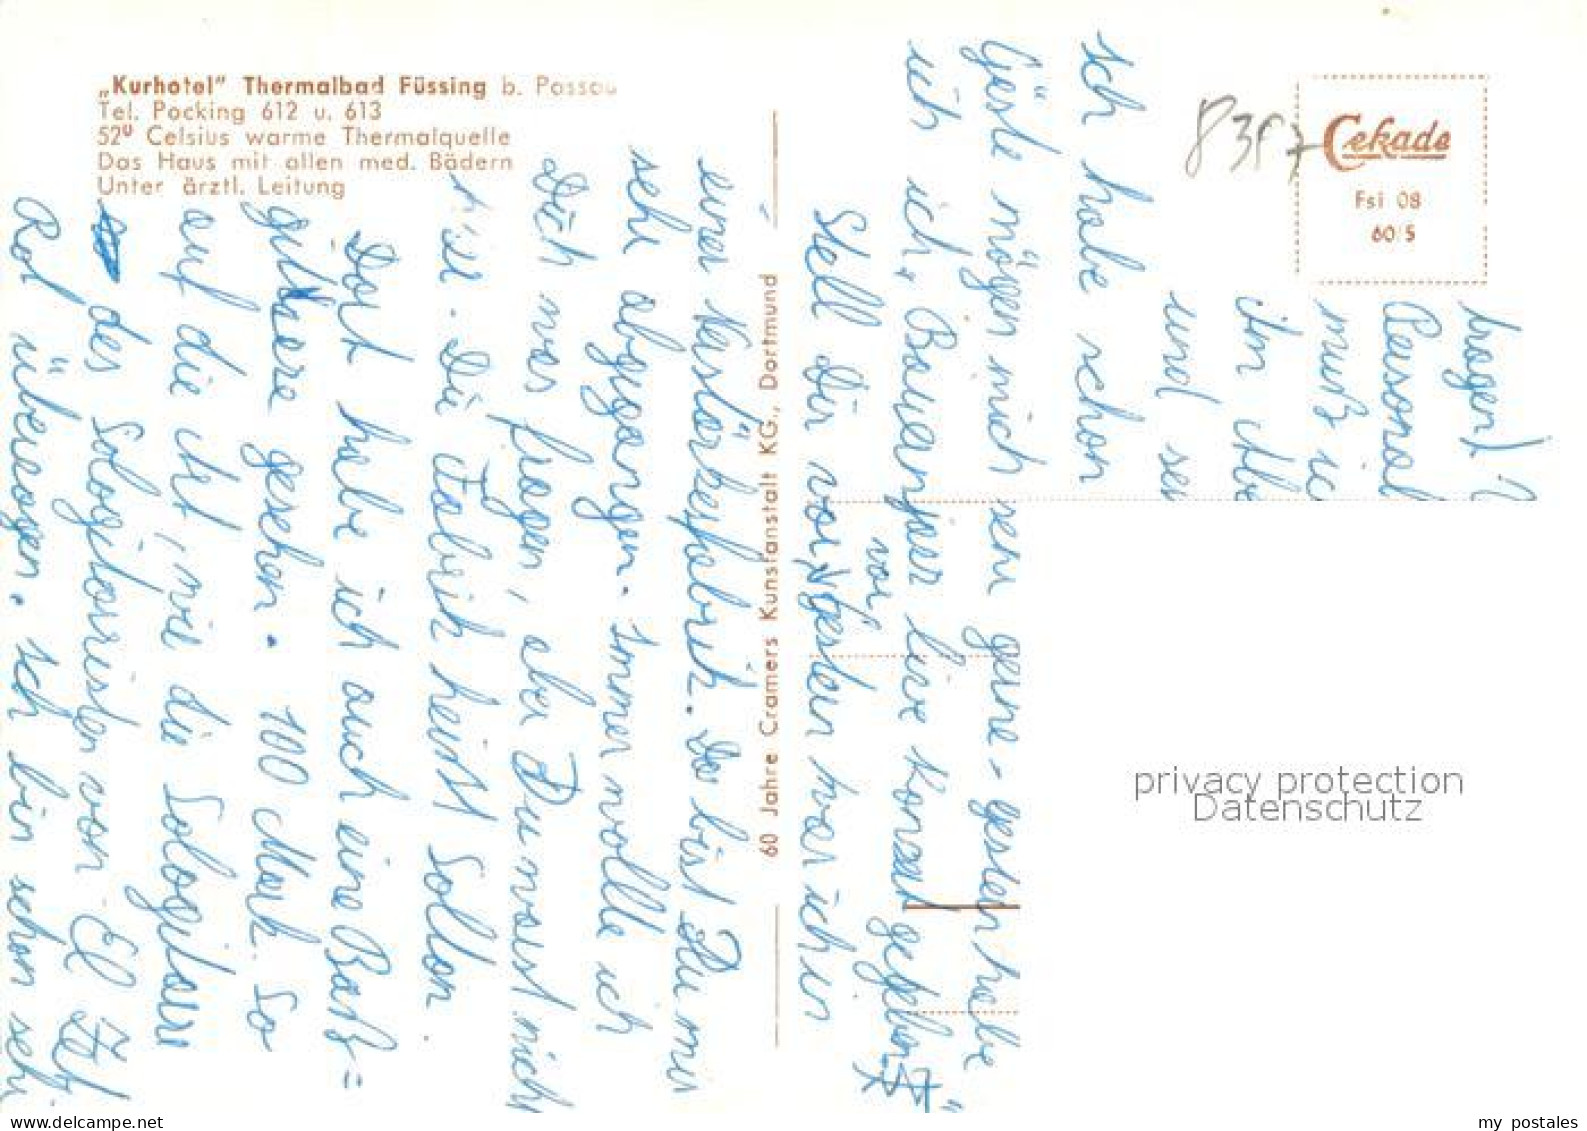 „Kurhotel" Thermalbad Füssing b. Passau
Tel. Pocking 612 u. 613
52° Celsius warme Thermalquelle
Das Haus mit allen med. Bädern
Unter ärztl. Leitung
60 Jahre Cramers Kunstanstalt KG., Dortmund
Cekade
Fsi 08
60/5
hagen!
Personal
muß ic
ihn Abe
und sei
Ich habe schon
Gäste mögen mich sehr gerne. gestern habe
ich ich, Bauernjoer live Konzert gegeben
vor
Stell Dir vor, gestern war ich in
einer Verstärkerfabrik. Da bist Du mir
sehr abgegangen. Immer wollte ich
Dich was fragen, aber Du warst nicht
hier. Die Fabrik heißt Sollon.
Dort habe ich auch eine Baß=
guitarre gesehen. 100 Mark. So
auf die Art, wie die Sologitarre
des Sologitarristen von El
Rol überzogen. Ich bin schon seh
privacy protection
Datenschutz
www.delcampe.net
my postales